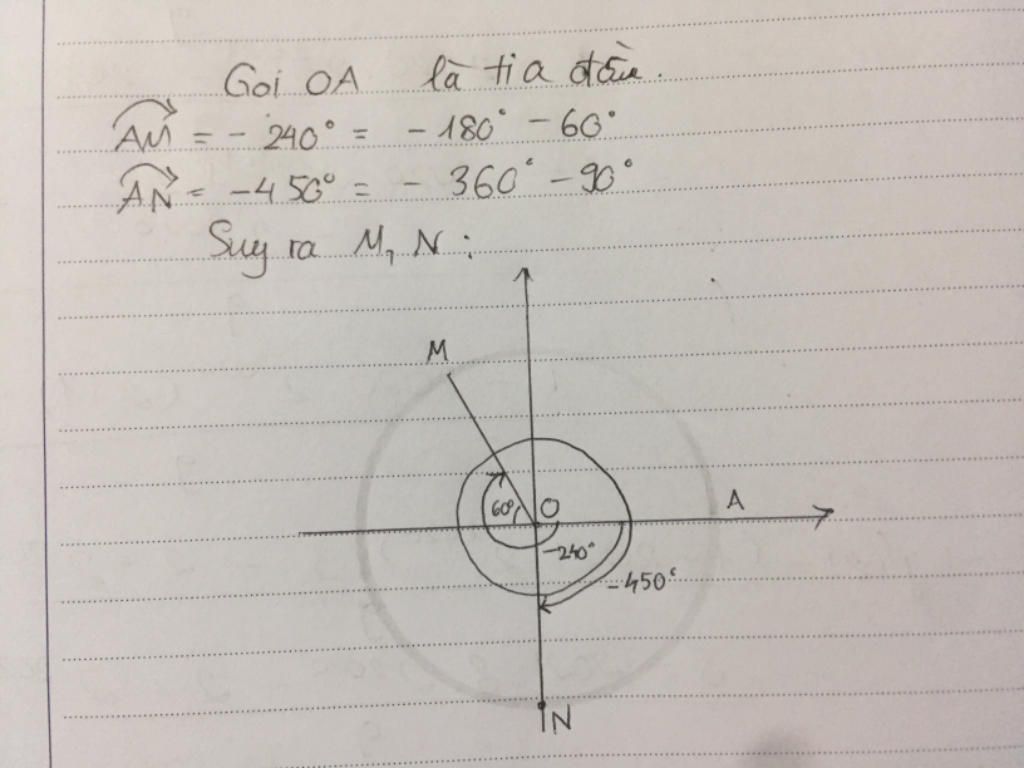 Gọi OA là tia đầu.
AM = - 240° = - 180° - 60°
AN = - 450° = - 360° - 90°
Suy ra M, N :
M
A
60°
O
-240°
-450°
N